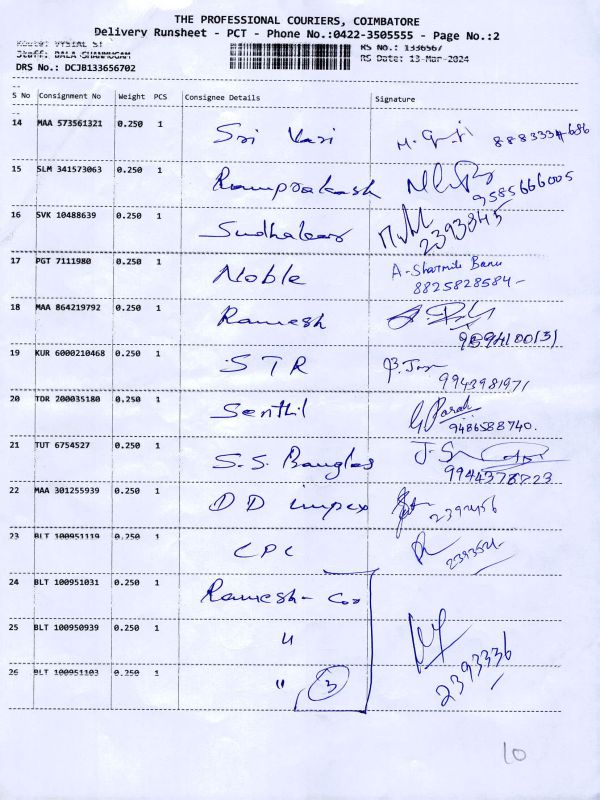 THE PROFESSIONAL COURIERS, COIMBATORE
Delivery Runsheet - PCT - Phone No.:0422-3505555 - Page No.:2
Route: VYSIAL ST RS No.: 1336567
Staff: BALA SHANMUGAM RS Date: 13-Mar-2024
DRS No.: DCJB133656702
S No Consignment No Weight PCS Consignee Details Signature
14 MAA 573561321 0.250 1 Sri Vari
15 SLM 341573063 0.250 1 Ramprakash 9585666005
16 SVK 10488639 0.250 1 Sudhakar 2393845
17 PGT 7111980 0.250 1 Noble A-Sharmila Banu
8825828584-
18 MAA 864219792 0.250 1 Ramesh
19 KUR 6000210468 0.250 1 STR
9943981971
20 TDR 200035180 0.250 1 Senthil
9486588740.
21 TUT 6754527 0.250 1 S.S. Bangles
9944378723
22 MAA 301255939 0.250 1 DD impex 2392456
23 BLT 100951119 0.250 1 CPC
24 BLT 100951031 0.250 1 Ramesh-
25 BLT 100950939 0.250 1 "
26 BLT 100951103 0.250 1 " 3 2393336
10